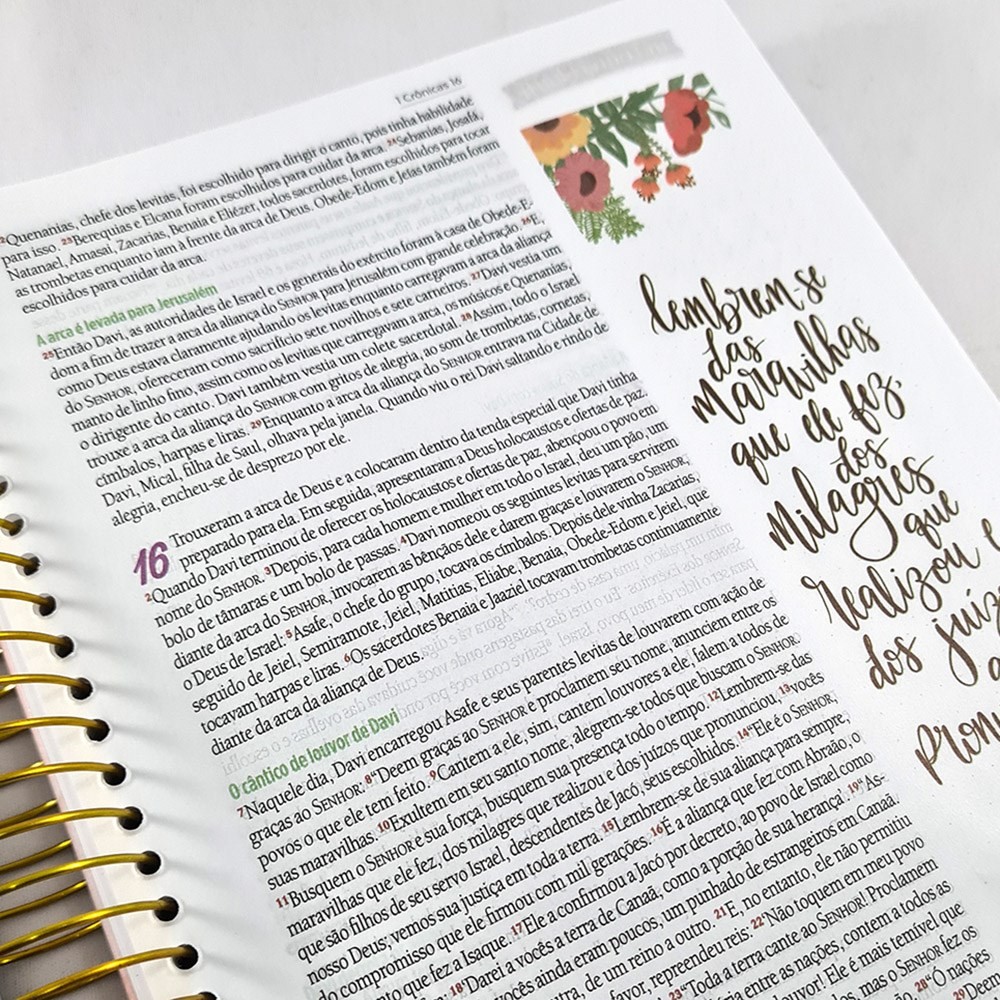 1 Crônicas 16
Quenanias, chefe dos levitas, foi escolhido para dirigir o canto, pois tinha habilidade
para isso. 23Berequias e Elcana foram escolhidos para cuidar da arca. 24Sebanias, Josafá,
Natanael, Amasai, Zacarias, Benaia e Eliézer, todos sacerdotes, foram escolhidos para tocar
as trombetas enquanto iam à frente da arca de Deus. Obede-Edom e Jeías também foram
escolhidos para cuidar da arca.
A arca é levada para Jerusalém
25Então Davi, as autoridades de Israel e os generais do exército foram à casa de Obede-E-
dom a fim de trazer a arca da aliança do SENHOR para Jerusalém com grande celebração. 26E,
como Deus estava claramente ajudando os levitas enquanto carregavam a arca da aliança
do SENHOR, ofereceram como sacrifício sete novilhos e sete carneiros. 27Davi vestia um
manto de linho fino, assim como os levitas que carregavam a arca, os músicos e Quenanias,
o dirigente do canto. Davi também vestia um colete sacerdotal. 28Assim, todo o Israel
trouxe a arca da aliança do SENHOR com gritos de alegria, ao som de trombetas, cornetas,
címbalos, harpas e liras. 29Enquanto a arca da aliança do SENHOR entrava na Cidade de
Davi, Mical, filha de Saul, olhava pela janela. Quando viu o rei Davi saltando e rindo de
alegria, encheu-se de desprezo por ele.
16 Trouxeram a arca de Deus e a colocaram dentro da tenda especial que Davi tinha
preparado para ela. Em seguida, apresentaram a Deus holocaustos e ofertas de paz.
2Quando Davi terminou de oferecer os holocaustos e ofertas de paz, abençoou o povo em
nome do SENHOR. 3Depois, para cada homem e mulher em todo o Israel, deu um pão, um
bolo de tâmaras e um bolo de passas. 4Davi nomeou os seguintes levitas para servirem
diante da arca do SENHOR, invocarem as bênçãos dele e darem graças e louvarem o SENHOR,
o Deus de Israel. 5Asafe, o chefe do grupo, tocava os címbalos. Depois dele vinha Zacarias,
seguido de Jeiel, Semiramote, Jeiel, Matitias, Eliabe, Benaia, Obede-Edom e Jeiel, que
tocavam harpas e liras. 6Os sacerdotes Benaia e Jaaziel tocavam trombetas continuamente
diante da arca da aliança de Deus.
O cântico de louvor de Davi
7Naquele dia, Davi encarregou Asafe e seus parentes levitas de louvarem com ação de
graças ao SENHOR: 8"Deem graças ao SENHOR e proclamem seu nome, anunciem entre os
povos o que ele tem feito. 9Cantem a ele, sim, cantem louvores a ele, falem a todos de
suas maravilhas. 10Exultem em seu santo nome, alegrem-se todos que buscam o SENHOR.
11Busquem o SENHOR e sua força, busquem sua presença todo o tempo. 12Lembrem-se das
maravilhas que ele fez, dos milagres que realizou e dos juízos que pronunciou, 13vocês
que são filhos de seu servo Israel, descendentes de Jacó, seus escolhidos. 14"Ele é o SENHOR,
nosso Deus; vemos sua justiça em toda a terra. 15Lembrem-se de sua aliança para sempre,
do compromisso que ele firmou com mil gerações. 16É a aliança que fez com Abraão, o
que fez a Isaque. 17Ele a confirmou a Jacó por decreto, ao povo de Israel como
18'Darei a vocês a terra de Canaã, como a porção de sua herança'. 19"As-
vocês ainda eram poucos, um punhado de estrangeiros em Canaã.
outra, de um reino a outro. 21E, no entanto, ele não permitiu
favor, repreendeu reis: 22'Não toquem em meu povo
23"Toda a terra cante ao SENHOR! Proclamem
entre as nações, contem a todos as
louvor! Ele é mais temível que
mas o SENHOR fez os
28"Ó nações
29Deem
lembrem-se
das
maravilhas
que ele fez,
dos
milagres
que
realizou e
dos juíz
pron